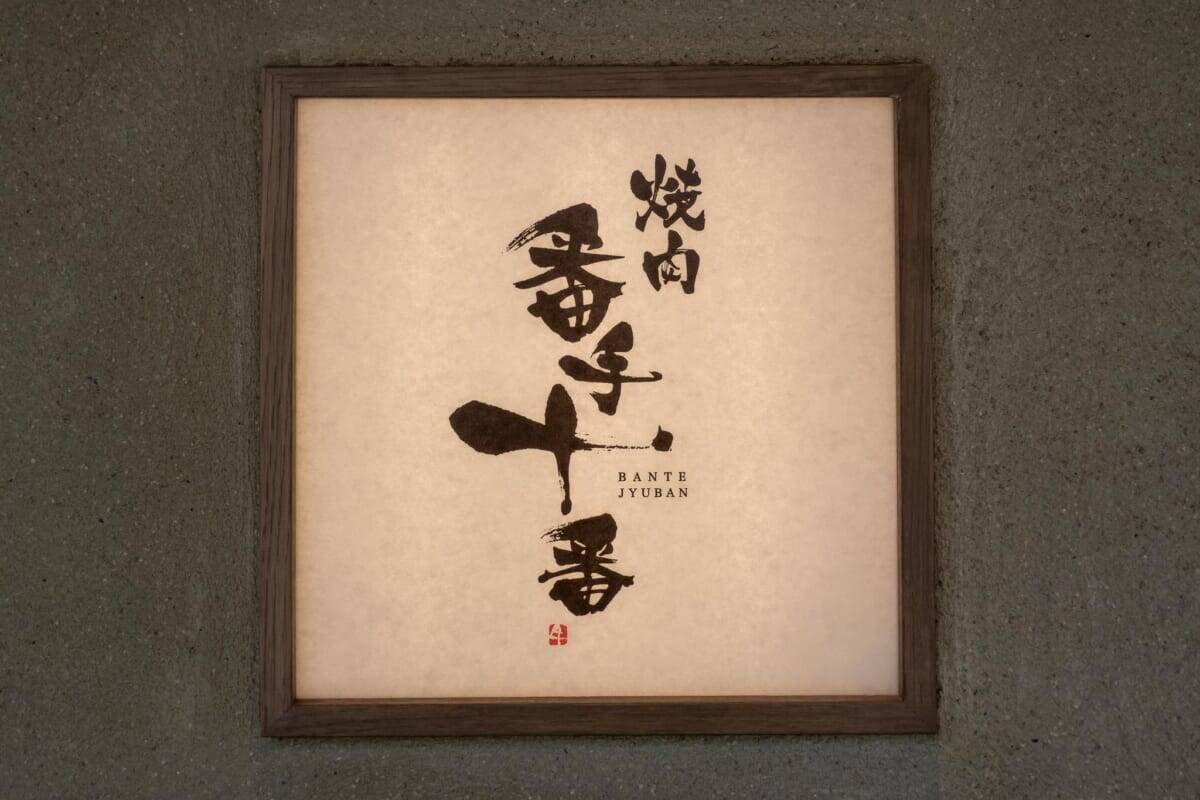 焼肉
番手十番
BANTE
JYUBAN
牛